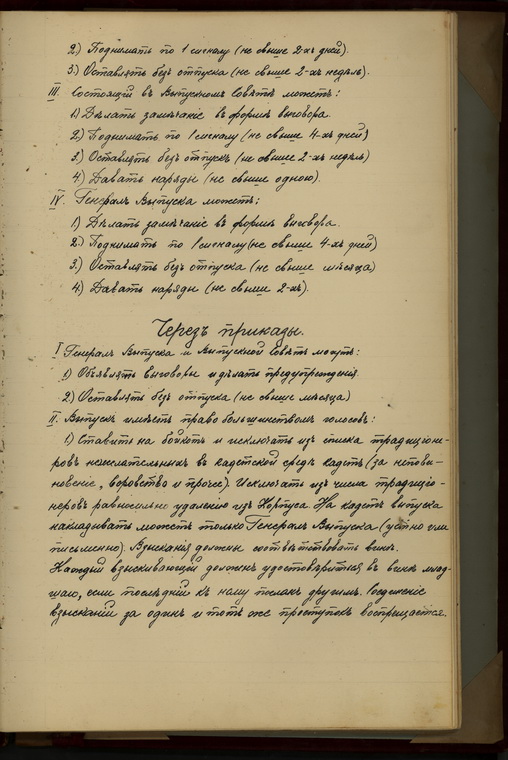 2.) Поднимать по 1 сигналу (не свыше 2-хъ дней).
3.) Оставлять безъ отпуска (не свыше 2-хъ недѣль).
III. Состоящій въ Выпускномъ Совѣтѣ можетъ:
1.) Дѣлать замѣчаніе въ формѣ выговора
2.) Поднимать по 1 сигналу (не свыше 4-хъ дней)
3.) Оставлять безъ отпуска (не свыше 2-хъ недѣль)
4.) Давать наряды (не свыше одного).
IV. Генералъ Выпуска можетъ:
1.) Дѣлать замѣчаніе въ формѣ выговора.
2.) Поднимать по 1 сигналу (не свыше 4-хъ дней)
3.) Оставлять безъ отпуска (не свыше мѣсяца)
4.) Давать наряды (не свыше 2-хъ).
Черезъ приказы.
I Генералъ Выпуска и Выпускной Совѣтъ могутъ:
1.) Объявлять выговоры и дѣлать предупрежденія.
2.) Оставлять безъ отпуска (не свыше мѣсяца)
II. Выпускъ имѣетъ право большинствомъ голосовъ:
1.) Ставить на бойкотъ и исключать изъ списка традиціоне-
ровъ нежелательныхъ въ кадетской средѣ кадетъ (за непови-
новеніе, воровство и прочее). Исключать изъ числа традиціо-
неровъ равносильно удаленію изъ Корпуса. На кадетъ выпуска
накладывать можетъ только Генералъ Выпуска (устно или
письменно). Взысканія должны соотвѣтствовать винѣ.
Каждый взыскивающій долженъ удостовѣриться въ винѣ млад-
шаго, если послѣдній къ нему посланъ другимъ. Соединеніе
взысканій за одинъ и тотъ же проступокъ воспрещается.